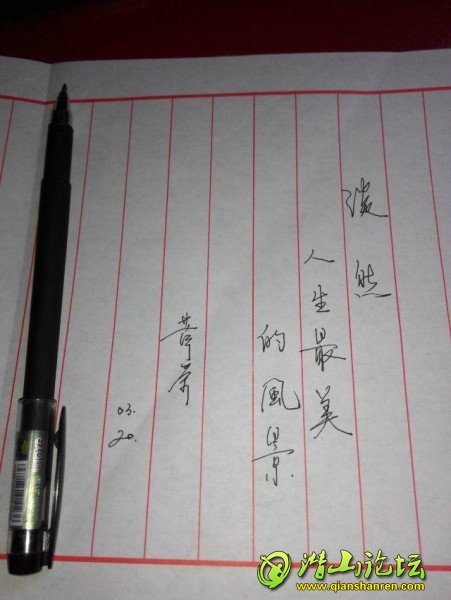 淡然
人生最美
的風景
03.
20.
潜山论坛
www.qianshanren.com